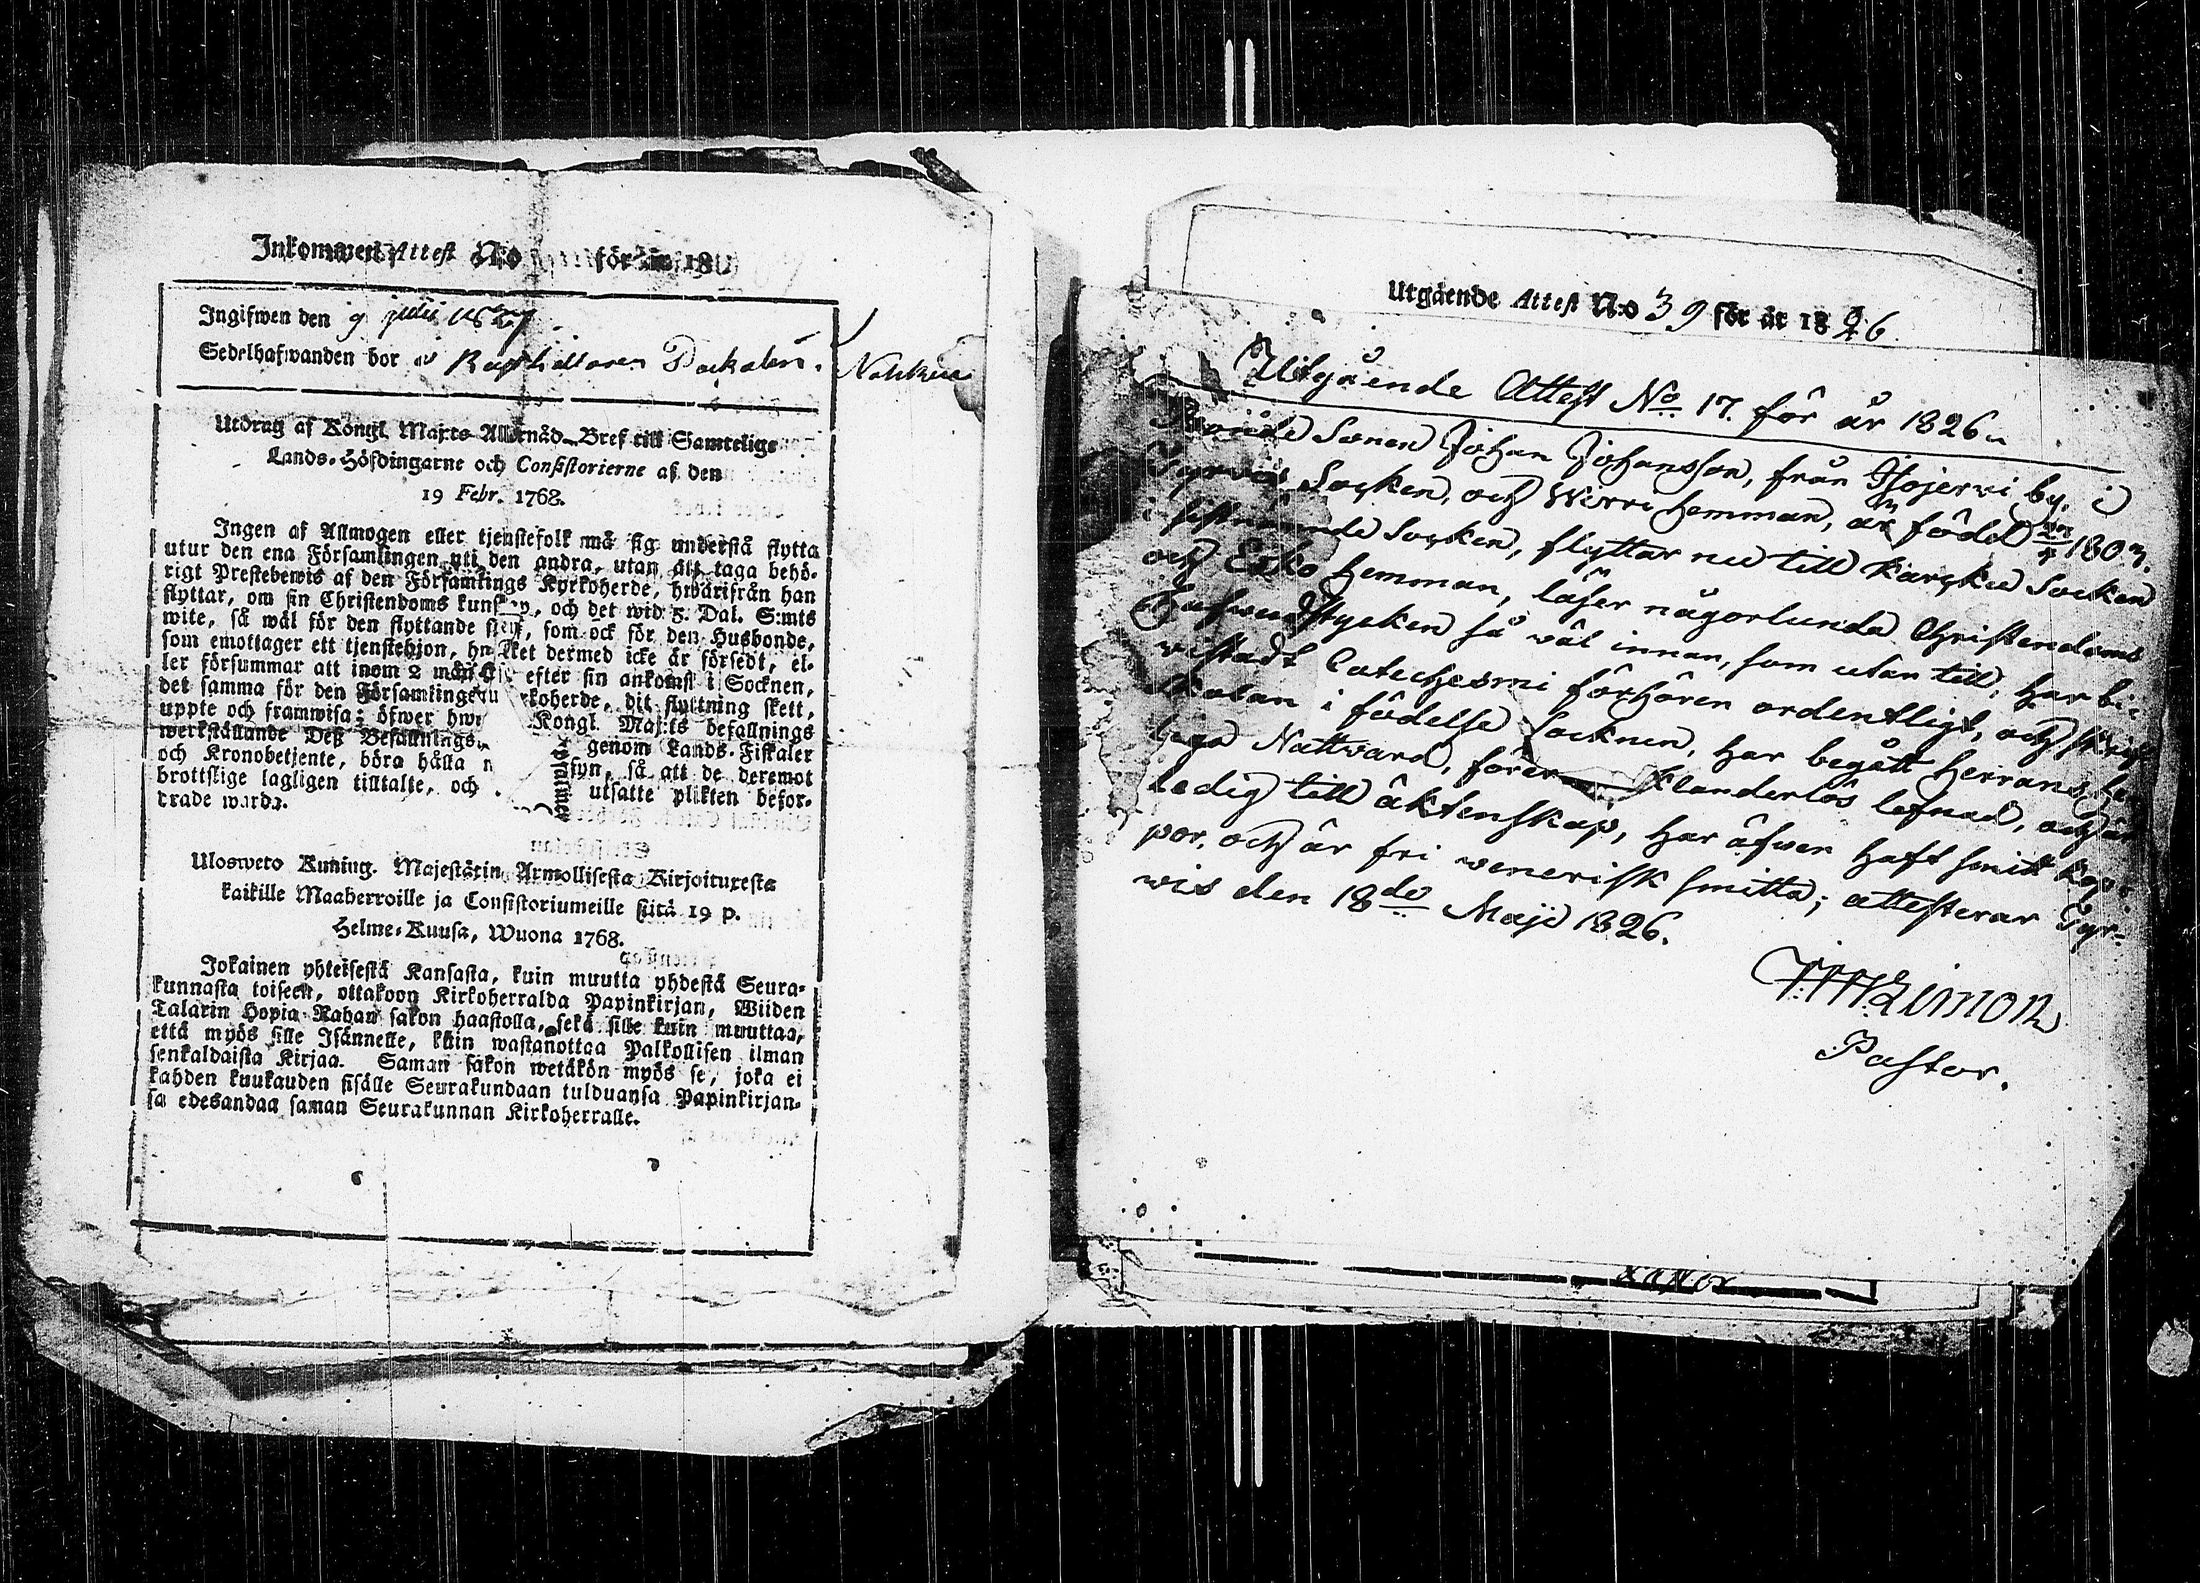 Inkommen Attest N:o för år 18
Ingifwen den 9 julii 1827.
Sedelhafwanden bor
Utdrag af Köngl. Maj:ts Allernåd. Bref till Samtelige
Lands-Höfdingarne och Consistorierne af den
19 Febr. 1768.
Ingen af Allmogen eller tjenstefolk må sig understå flytta
utur den ena Församlingen uti den andra, utan att taga behö-
rigt Prestebewis af den Församlings Kyrkoherde, hwarifrån han
flyttar, om sin Christendoms kunskap, och det wid 5. Dal. S:mts
wite, så wäl för den flyttande sjelf, som ock för den Husbonde,
som emottager ett tjenstehjon, hwilket dermed icke är försedt, el-
ler försummar att inom 2 månader efter sin ankomst i Socknen,
det samma för den Församlingens Kyrkoherde, dit flyttning skett,
uppte och framwisa; öfwer hwars Kongl. Maj:ts befallnings
werkställande Deß Befallnings- genom Lands-Fiskaler
och Kronobetjente, böra hålla syn, så att de deremot
brottslige lagligen tilltalte, och utsatte plikten befor-
drade warda.
Ulosweto Kuning. Majestätin Armollisesta Kirjoituxesta
kaikille Maaherroille ja Consistoriumeille siitä 19 p.
Helme-Kuusa, Wuona 1768.
Jokainen yhteisestä Kansasta, kuin muutta yhdestä Seura-
kunnasta toiseen, ottakoon Kirkoherralda Papinkirjan, Wiiden
Talarin Hopia-Rahan sakon haastolla, sekä sille kuin muuttaa,
että myös sille Isännelle, kuin wastanottaa Palkollisen ilman
senkaldaista Kirjaa. Saman sakon wetäkön myös se, joka ei
kahden kuukauden sisälle Seurakundaan tulduansa Papinkirjan-
sa edesandaa saman Seurakunnan Kirkoherralle.
Utgående Attest N:o 39 för år 1826.
Utgående Attest No. 17. för år 1826.
Bonde Sonen Johan Johansson, från Stojerwi by, i
Tyrwis Socken, och Werri hemman, är född 180
i sistnämnde Socken, flyttar nu till Karcku Socken
och Esko hemman, läser någorlunda Christendoms
Hufwudstycken så wäl innan, som utan till, har bi-
wistadt Catechesmi förhören ordentligt, och skrift
skolan i födelse Socknen, har begått Herrans he-
liga Nattward, förer klanderlös lefnad, och är
ledig till äktenskap, har äfwen haft smitt kop-
por, och är fri wenerisk smitta; attesterar Tyr-
wis den 18de Maji 1826.
Pastor.